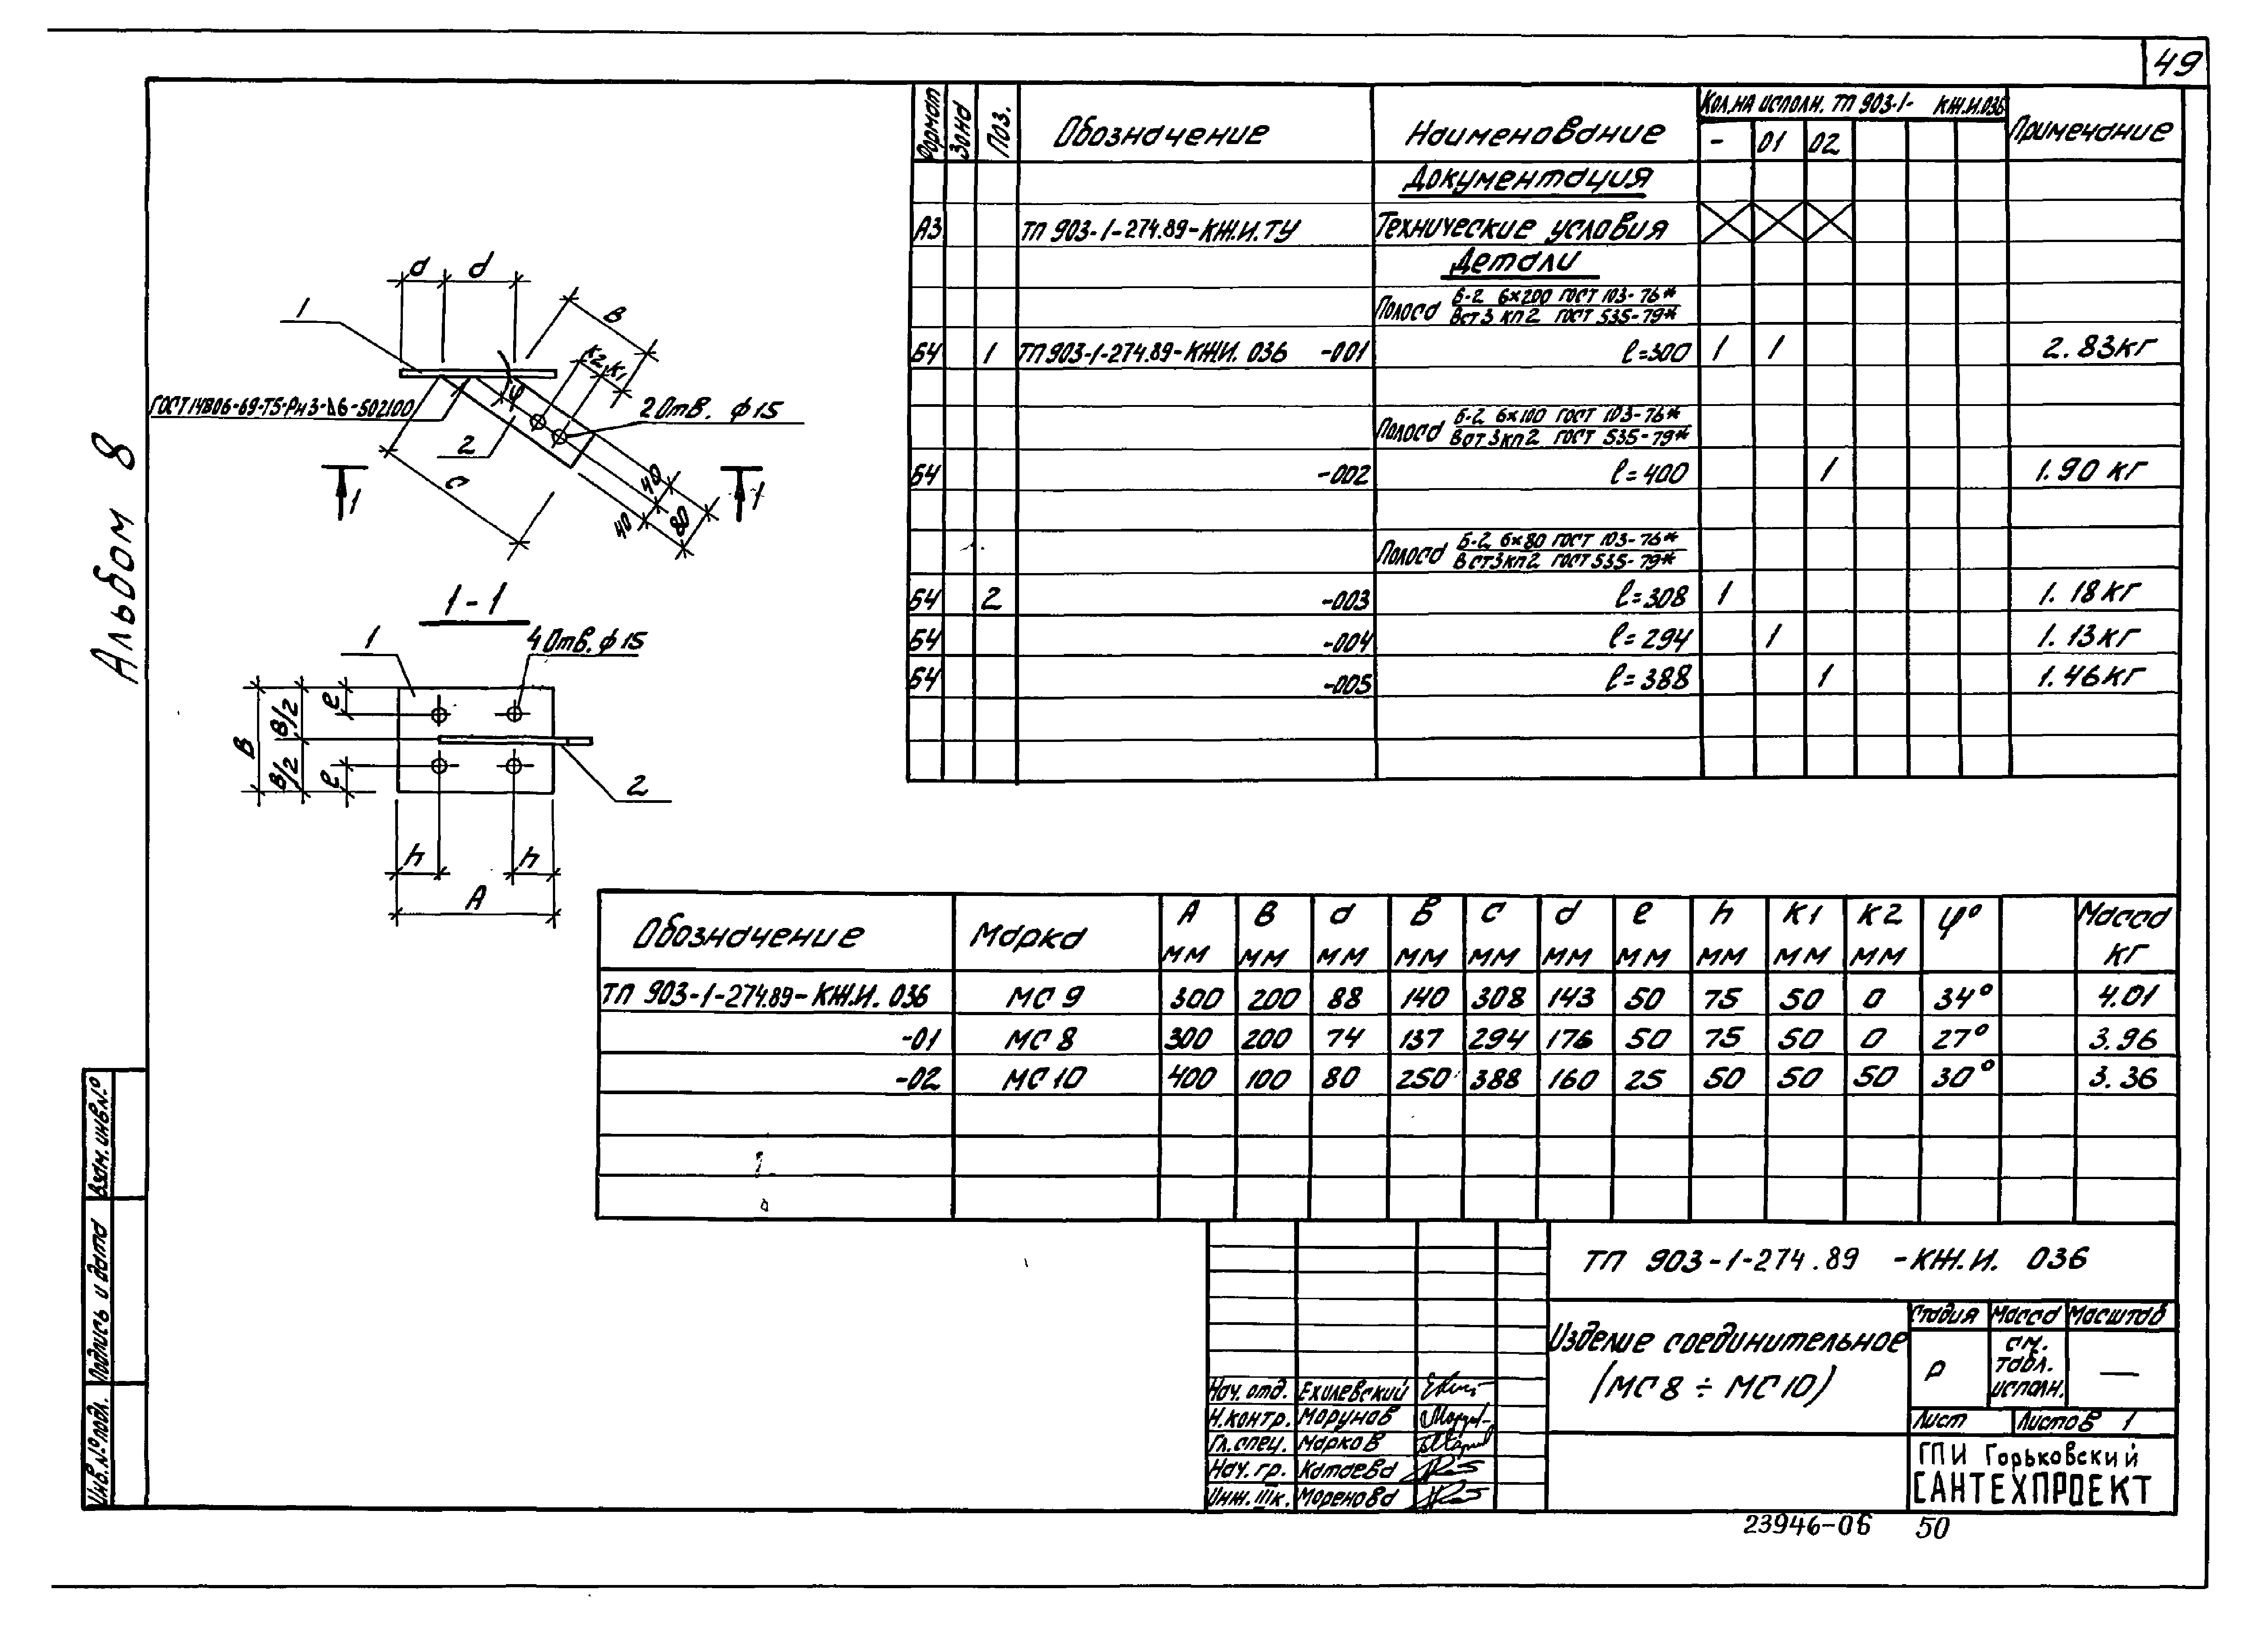 49
Альбом 8
Формат Зона Поз. Обозначение Наименование Кол. на исполн. ТП 903-1- КЖ.И.036 Примечание
- 01 02
Документация
А3 ТП 903-1-274.89-КЖ.И.ТУ Технические условия
Детали
Полоса Б-2 6×200 ГОСТ 103-76*
ВСт3 кп2 ГОСТ 535-79*
Б4 1 ТП 903-1-274.89-КЖ.И. 036 -001 ℓ=300 1 1 2.83кг
Полоса Б-2 6×100 ГОСТ 103-76*
ВСт3кп2 ГОСТ 535-79*
Б4 -002 ℓ=400 1 1.90 кг
Полоса Б-2 6×80 ГОСТ 103-76*
ВСт3кп2 ГОСТ 535-79*
Б4 2 -003 ℓ=308 1 1.18кг
Б4 -004 ℓ=294 1 1.13кг
Б4 -005 ℓ=388 1 1.46кг
а d
1
в
к2 к1
φ
ГОСТ 14806-69-Т5-Рн3-Δ6-50Z100
2 Отв. ф15
2
с
40
40
80
1 1
1-1
1
4 Отв. ф15
В В/2 В/2 е е
2
h h
А
Обозначение Марка А мм В мм а мм в мм с мм d мм е мм h мм к1 мм к2 мм φ° Масса кг
ТП 903-1-274.89-КЖ.И. 036 МС 9 300 200 88 140 308 143 50 75 50 0 34° 4.01
-01 МС 8 300 200 74 137 294 176 50 75 50 0 27° 3.96
-02 МС 10 400 100 80 250 388 160 25 50 50 50 30° 3.36
ТП 903-1-274.89 -КЖ.И. 036
Изделие соединительное
(МС 8 ÷ МС 10)
Стадия Масса Масштаб
Р см. табл. исполн. —
Лист Листов 1
Нач. отд. Ехилевский
Н.контр. Морунов
Гл. спец. Марков
Нач. гр. Катаева
Инж. IIIк. Моренова
ГПИ Горьковский
САНТЕХПРОЕКТ
Взам. инв.№
Подпись и дата
Инв.№ подл.
23946-06 50